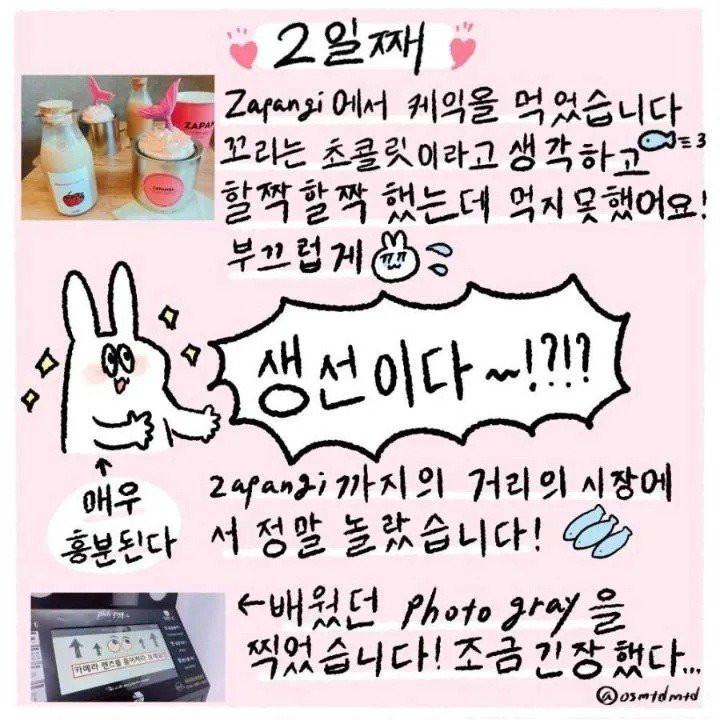 2일째
Zapangi에서 케익을 먹었습니다
꼬라는 초콜릿이라고 생각하고
할짝할짝 했는데 먹지못했어요!
부끄럽게
ZAPANGI
ZAPANGI
생선이다~!?!?
매우
흥분된다
zapangi까지의 거리의 시장에
서 정말 놀랐습니다!
←배웠던 photo gray을
찍었습니다! 조금긴장했다...
photo gray
카메라 렌즈를 들여봐라 보세요!
@osmtdmtd